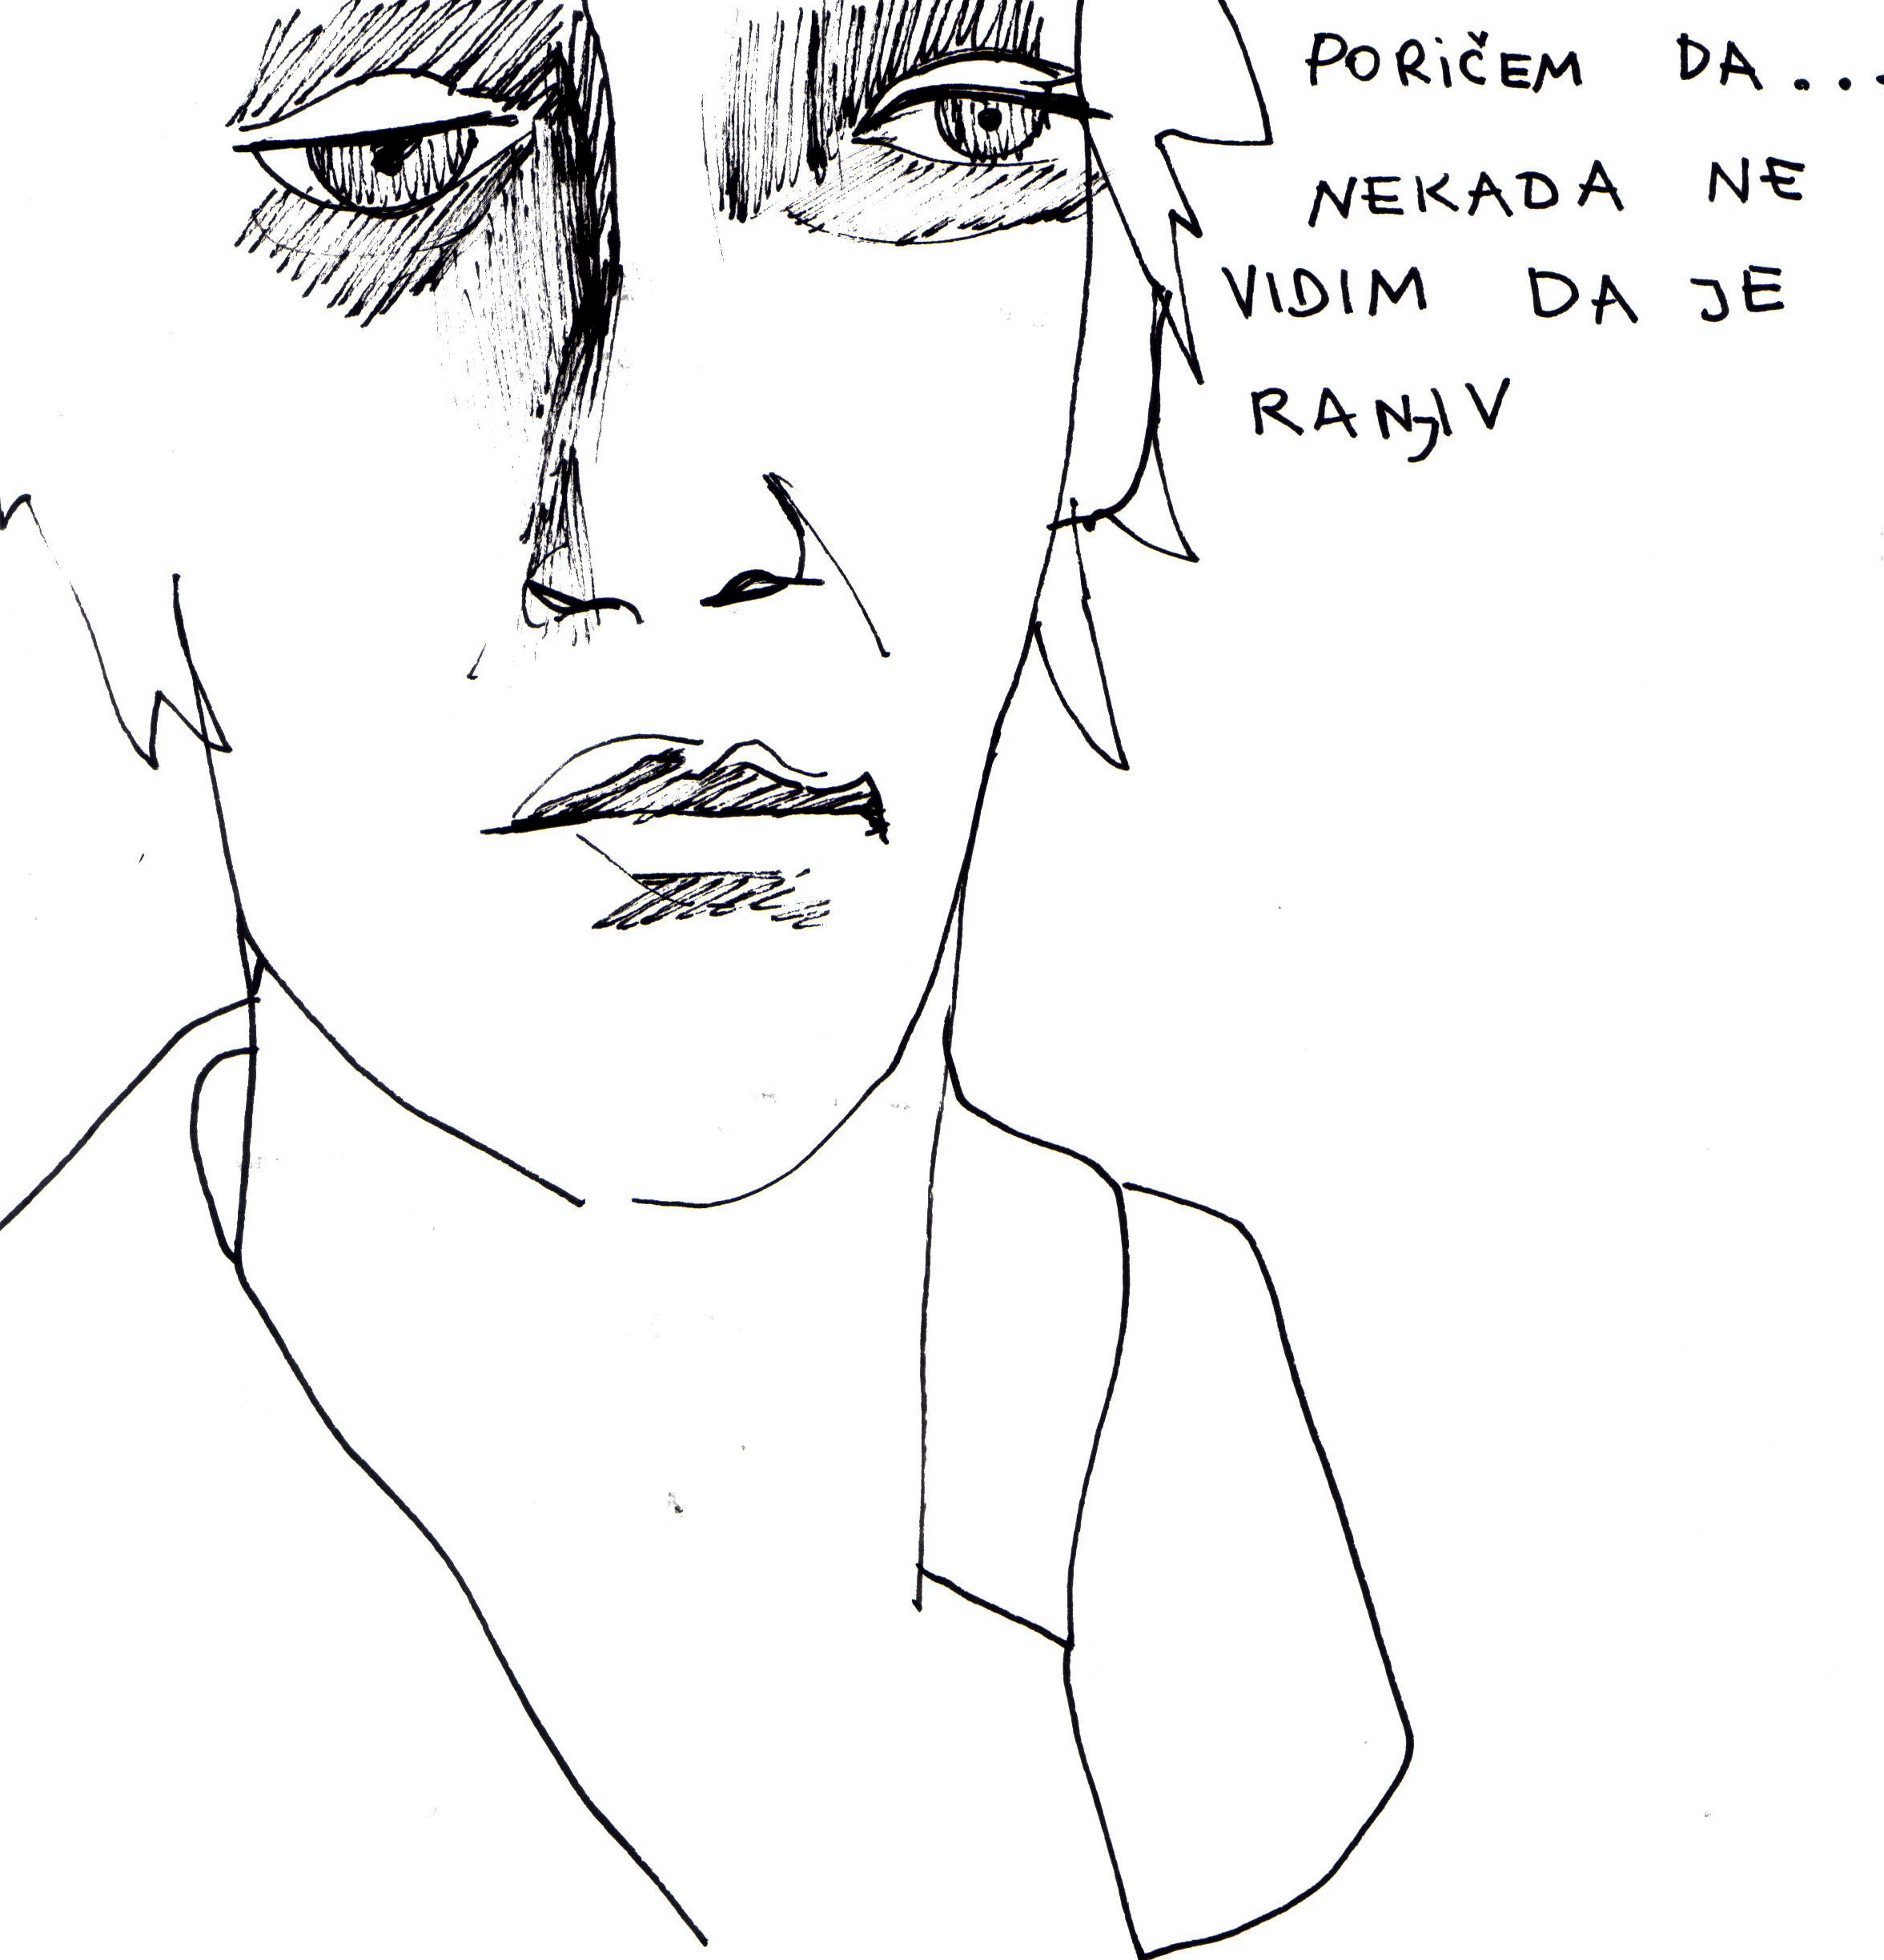 PORiČEM DA...
NEKADA NE
VIDIM DA JE
RANJIV